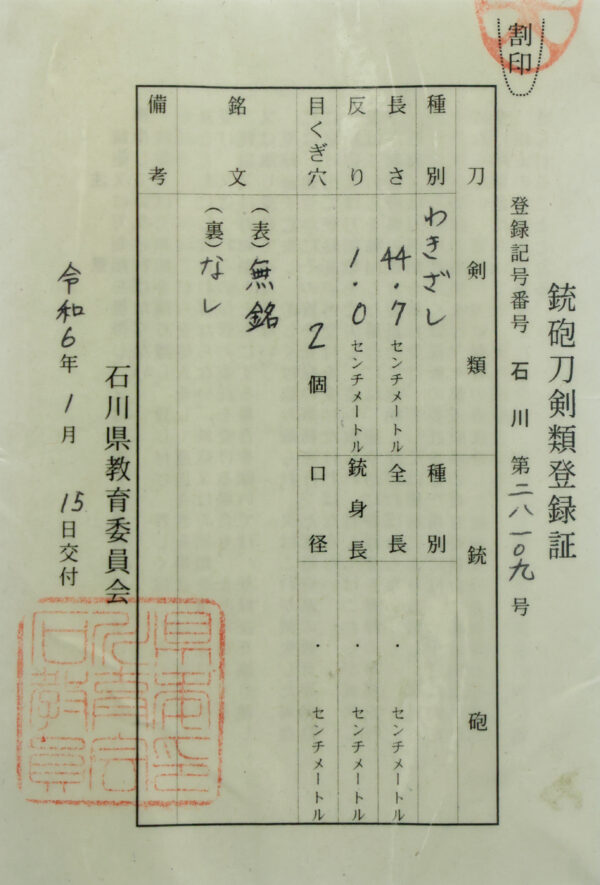 割印
銃砲刀剣類登録証
登録記号番号 石川 第二八一〇九号
刀剣類
銃砲
種別 わきざし
種別
長さ 44.7センチメートル
全長 ・ センチメートル
反り 1.0センチメートル
銃身長 ・ センチメートル
目くぎ穴 2個
口径 ・ センチメートル
銘文
(表)無銘
(裏)なし
備考
石川県教育委員会
令和6年1月15日交付